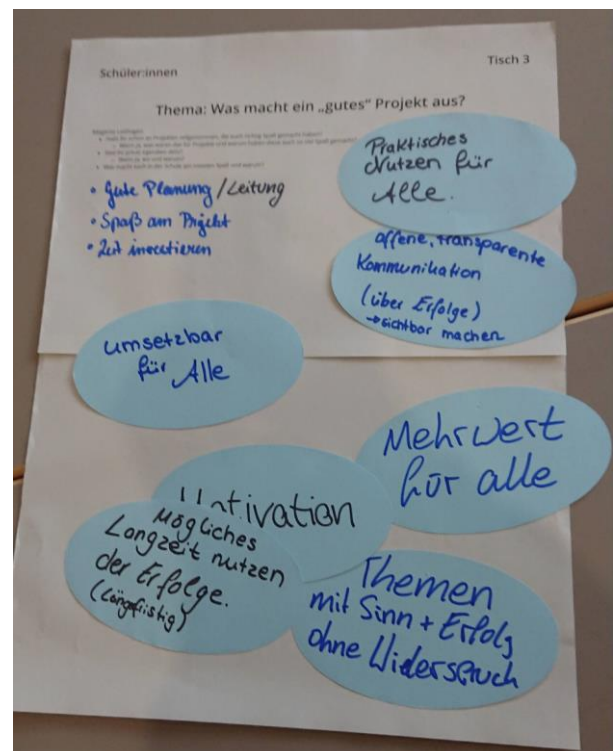 Schüler:innen
Tisch 3
Thema: Was macht ein „gutes“ Projekt aus?
• Gute Planung/Leitung
• Spaß am Projekt
• Zeit investieren
Praktisches
Nutzen für
Alle.
offene, transparente
Kommunikation
(über Erfolge)
→ sichtbar machen
umsetzbar
für Alle
Mehrwert
für alle
Motivation
Mögliches
Langzeit nutzen
der Erfolge.
(Längsfristig)
Themen
mit Sinn + Erfolg
ohne Widerspruch